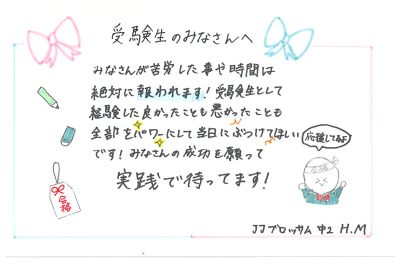 受験生のみなさんへ
みなさんが苦労した事や時間は
絶対に報われます！受験生として
経験した良かったことも悪かったことも
全部をパワーにして当日にぶつけてほしい
です！みなさんの成功を願って
実践で待ってます！
応援してるよ
合格
合格
JJブロッサム 中2 H.M